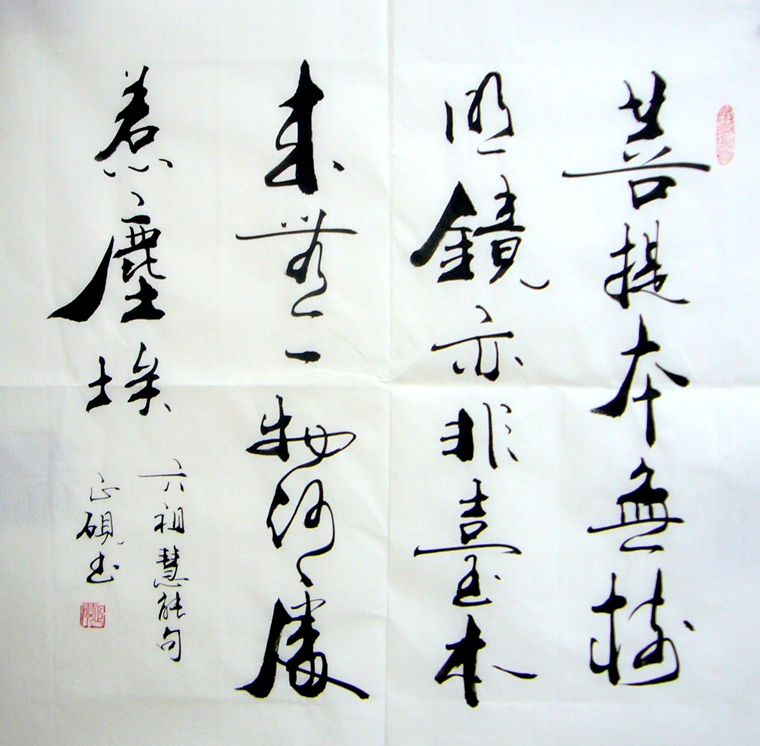 菩提本無樹
明鏡亦非臺本
來無一物何處
惹塵埃
六祖慧能句
正硯書